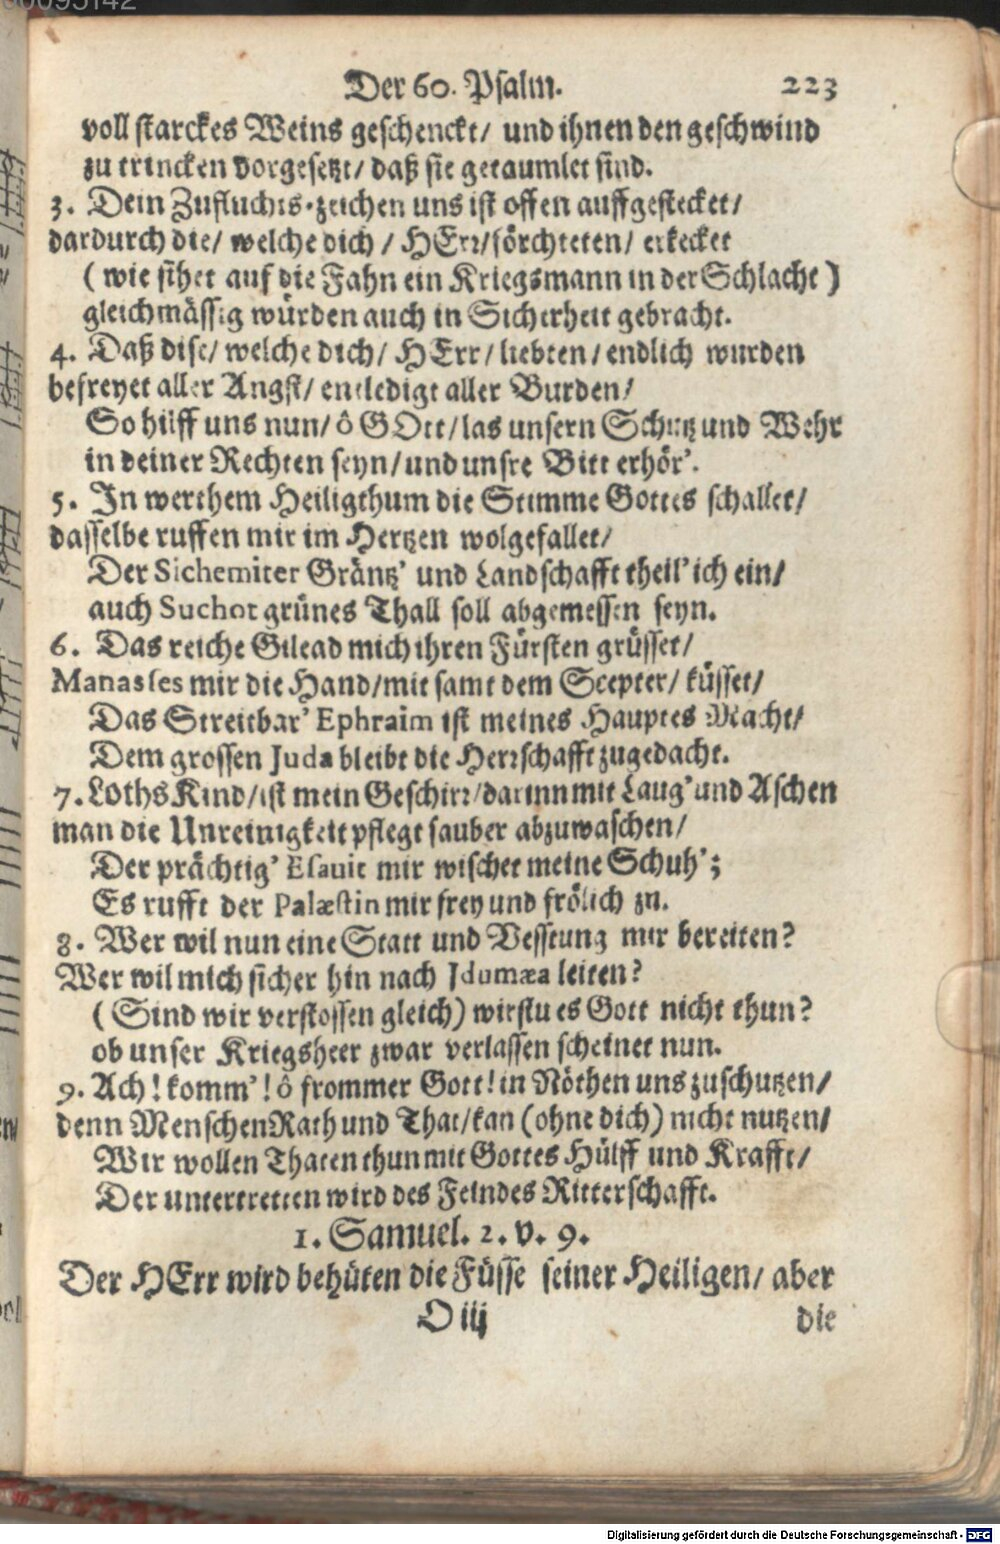 Der 60. Psalm. 223
voll starckes Weins geschenckt/ und ihnen den geschwind
zu trincken vorgesetzt/ daß sie getaumlet sind.
3. Dein Zufluchts-zeichen uns ist offen auffgestecket/
dardurch die/ welche dich/ HErr/ förchteten/ erkecket
( wie sihet auf die Fahn ein Kriegsmann in der Schlacht )
gleichmässig würden auch in Sicherheit gebracht.
4. Daß dise/ welche dich/ HErr/ liebten/ endlich wurden
befreyet aller Angst/ entledigt aller Burden/
So hilff uns nun/ ô GOtt/ las unsern Schutz und Wehr
in deiner Rechten seyn/ und unsre Bitt erhör'.
5. In werthem Heiligthum die Stimme Gottes schallet/
dasselbe ruffen mir im Hertzen wolgefallet/
Der Sichemiter Gräntz' und Landschafft theil' ich ein/
auch Suchot grünes Thall soll abgemessen seyn.
6. Das reiche Gilead mich ihren Fürsten grüsset/
Manasses mir die Hand/ mit samt dem Scepter/ küsset/
Das Streitbar' Ephraim ist meines Hauptes Macht/
Dem grossen Juda bleibt die Herrschafft zugedacht.
7. Loths Kind/ ist mein Geschirr/ darinn mit Laug' und Aschen
man die Unreinigkeit pflegt sauber abzuwaschen/
Der prächtig' Esavit mir wischet meine Schuh';
Es rufft der Palæstin mir frey und frölich zu.
8. Wer wil nun eine Statt und Vesstung mir bereiten?
Wer wil mich sicher hin nach Idumæa leiten?
( Sind wir verstossen gleich) wirstu es Gott nicht thun?
ob unser Kriegsheer zwar verlassen scheinet nun.
9. Ach! komm'! ô frommer Gott! in Nöthen uns zu schutzen/
denn Menschen Rath und That/ kan (ohne dich) nicht nutzen/
Wir wollen Thaten thun mit Gottes Hülff und Krafft/
Der untertretten wird des Feindes Ritterschafft.
1. Samuel. 2. v. 9.
Der HErr wird behüten die Füsse seiner Heiligen/ aber
O iij die
Digitalisierung gefördert durch die Deutsche Forschungsgemeinschaft - DFG